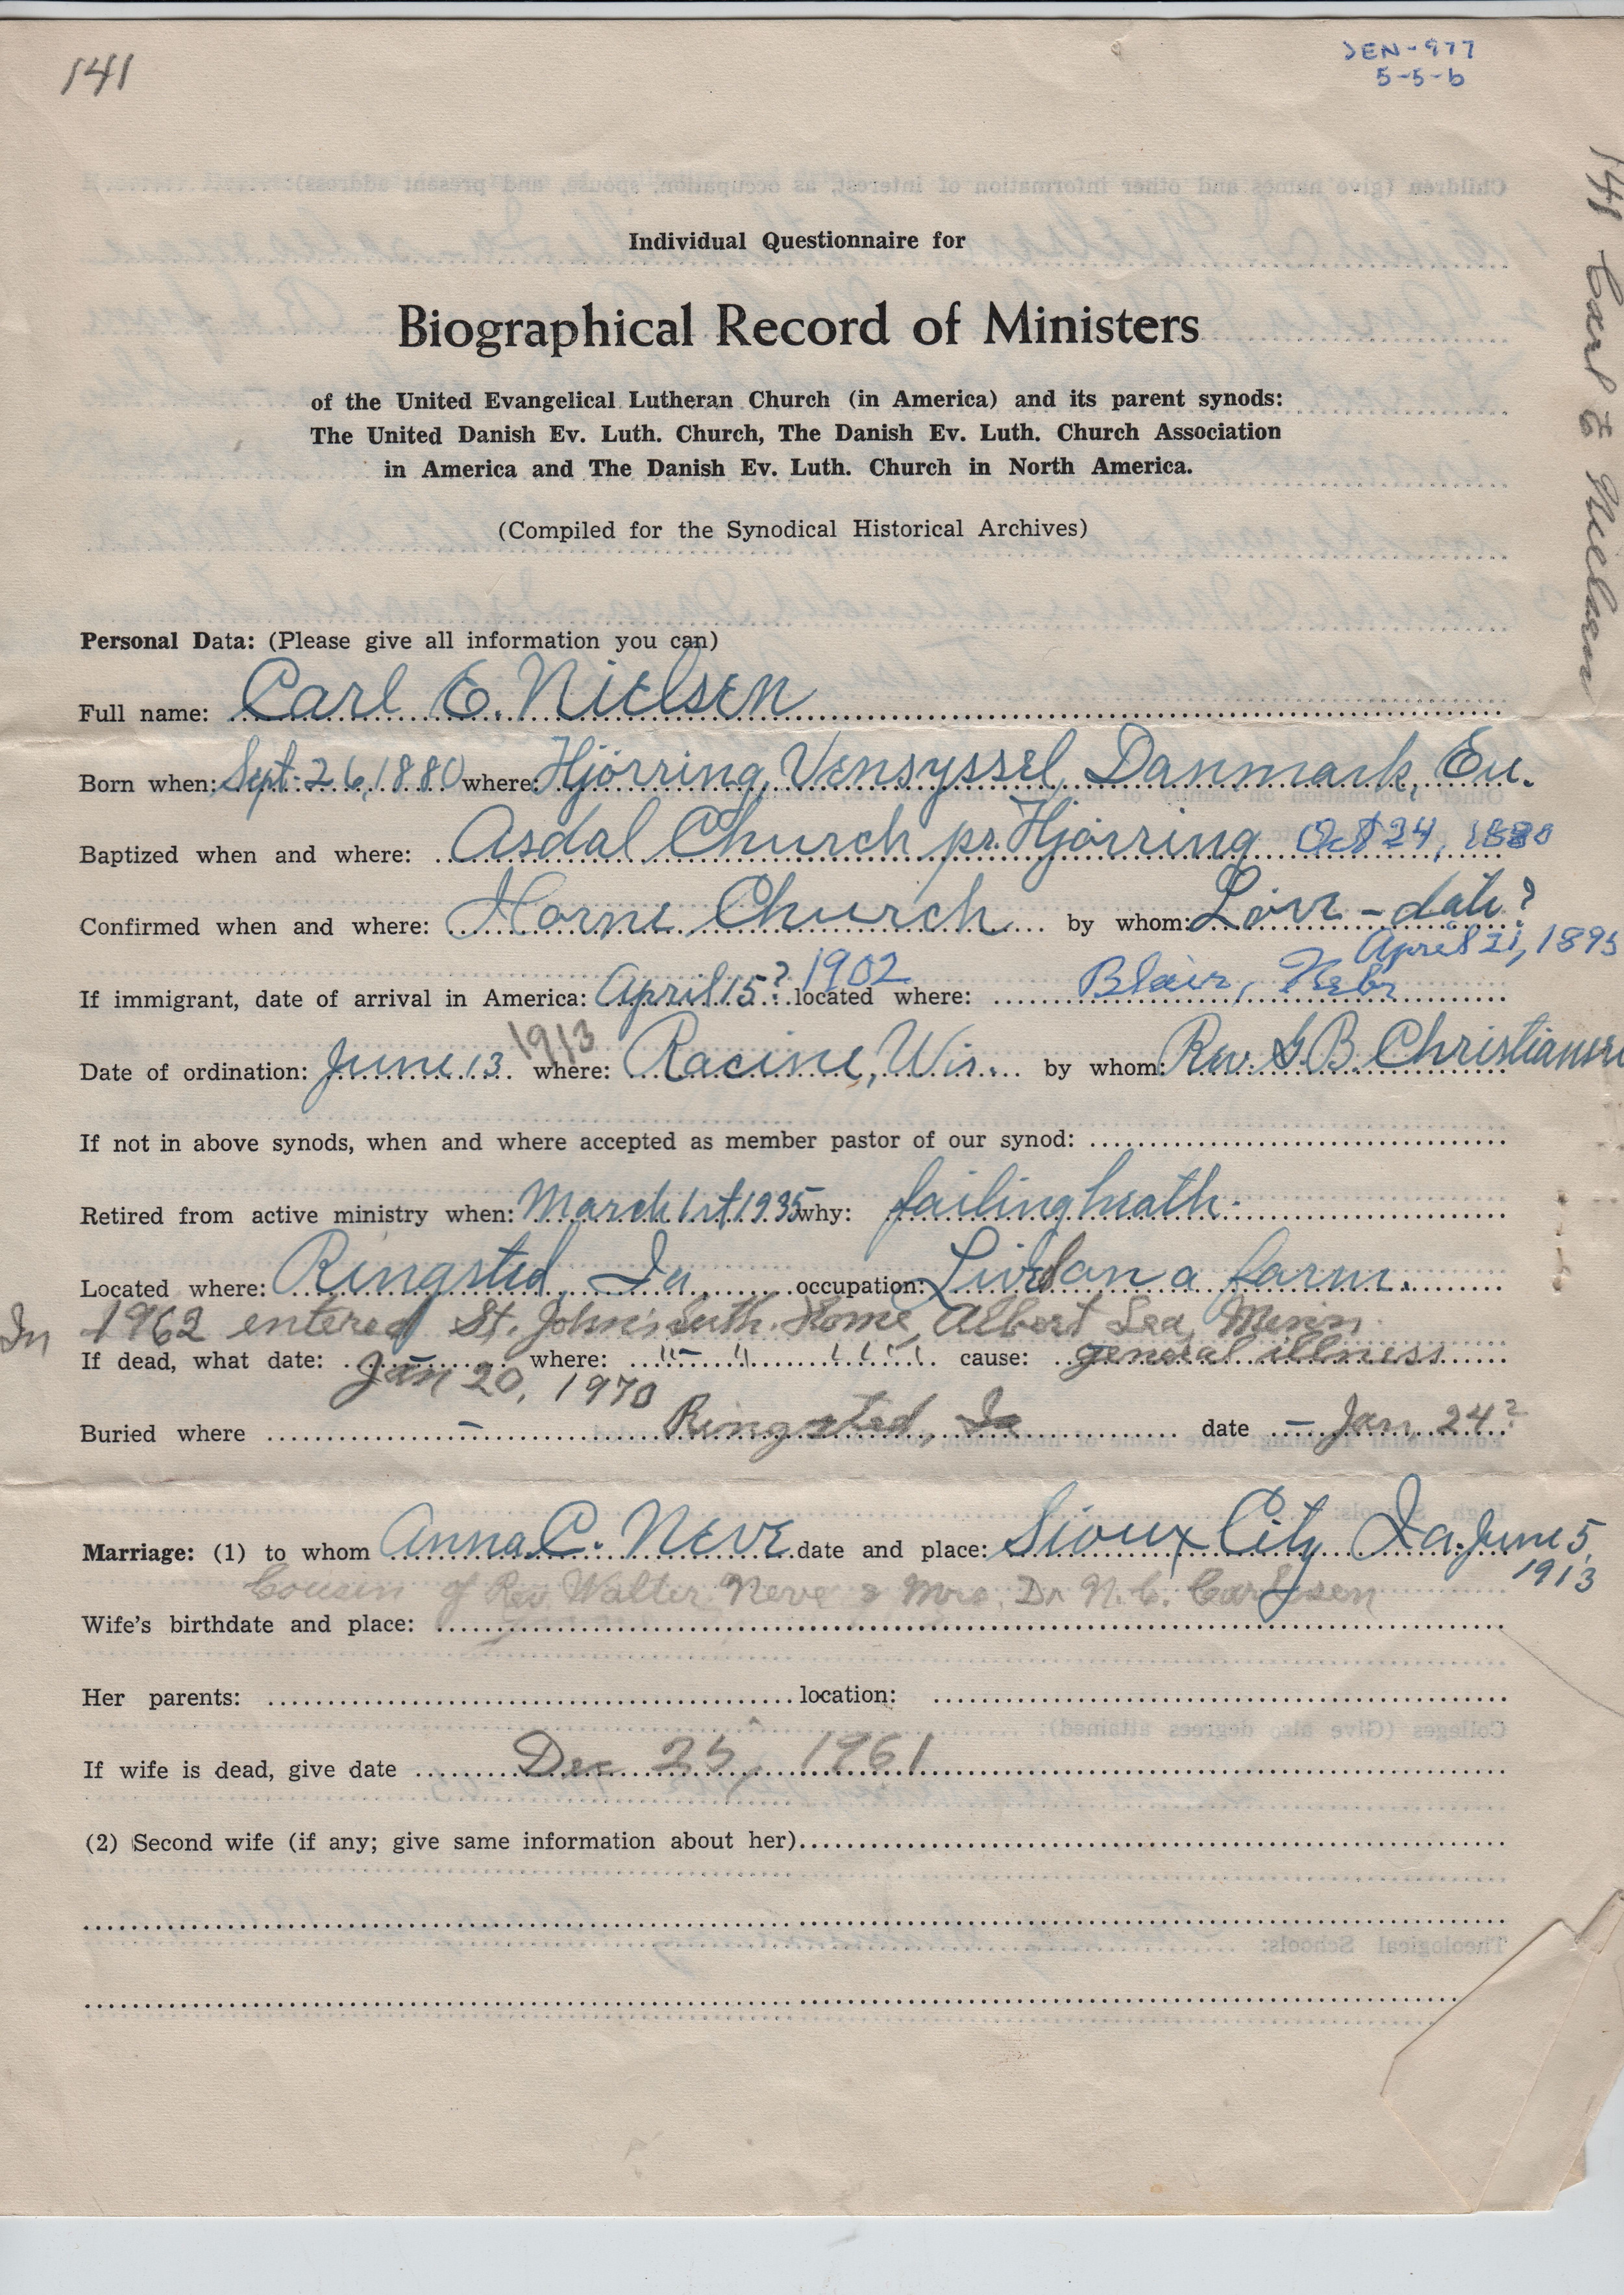 141
DEN-977
5-5-b
141 Carl E Nielsen
Individual Questionnaire for
Biographical Record of Ministers
of the United Evangelical Lutheran Church (in America) and its parent synods:
The United Danish Ev. Luth. Church, The Danish Ev. Luth. Church Association
in America and The Danish Ev. Luth. Church in North America.
(Compiled for the Synodical Historical Archives)
Personal Data: (Please give all information you can)
Full name: Carl E. Nielsen
Born when: Sept. 26, 1880 where: Hjörring, Vensyssel, Danmark, Eu.
Baptized when and where: Asdal Church pr. Hjörring Oct 24, 1880
Confirmed when and where: Horne Church by whom: - date?
April 21, 1895
If immigrant, date of arrival in America: April 15? 1902 located where: Blair, Nebr
Date of ordination: June 13 1913 where: Racine, Wis. by whom: Rev. G.B. Christiansen
If not in above synods, when and where accepted as member pastor of our synod:
Retired from active ministry when: March 1st 1935 why: failing heath.
Located where: Ringsted, Ia. occupation: Lived on a farm.
In 1962 entered St. John's Luth. Home, Albert Lea, Minn.
If dead, what date: Jan 20, 1970 where: " " " " cause: general illness
Buried where - Ringsted, Ia date - Jan. 24?
Marriage: (1) to whom Anna C. Neve date and place: Sioux City Ia. June 5,
1913
Cousin of Rev. Walter Neve & Mrs. Dr N. C. Carlsen
Wife's birthdate and place:
Her parents: location:
If wife is dead, give date Dec 25, 1961
(2) Second wife (if any; give same information about her)